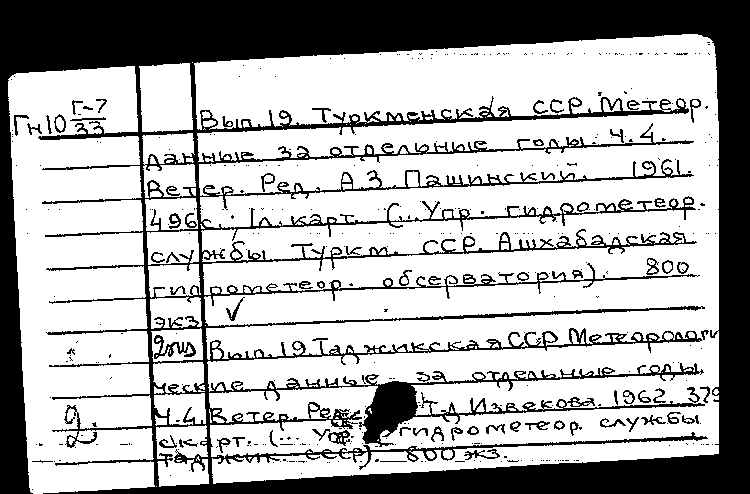 Гн10 Г-7/33 Вып. 19. Туркменская ССР. Метеор.
данные за отдельные годы. Ч. 4.
Ветер. Ред. А.З. Пашинский. 1961.
496с.; 1л. карт. (... Упр. гидрометеор.
службы Туркм. ССР. Ашхабадская
гидрометеор. обсерватория). 800
экз. ✓
Вып. 19. Таджикская ССР Метеорологи
ческие данные за отдельные годы.
2. Ч. 4. Ветер. Ред. Т.Д. Извекова. 1962. 379
с. карт. (... Упр. гидрометеор. службы
Таджик. ССР). 800 экз.